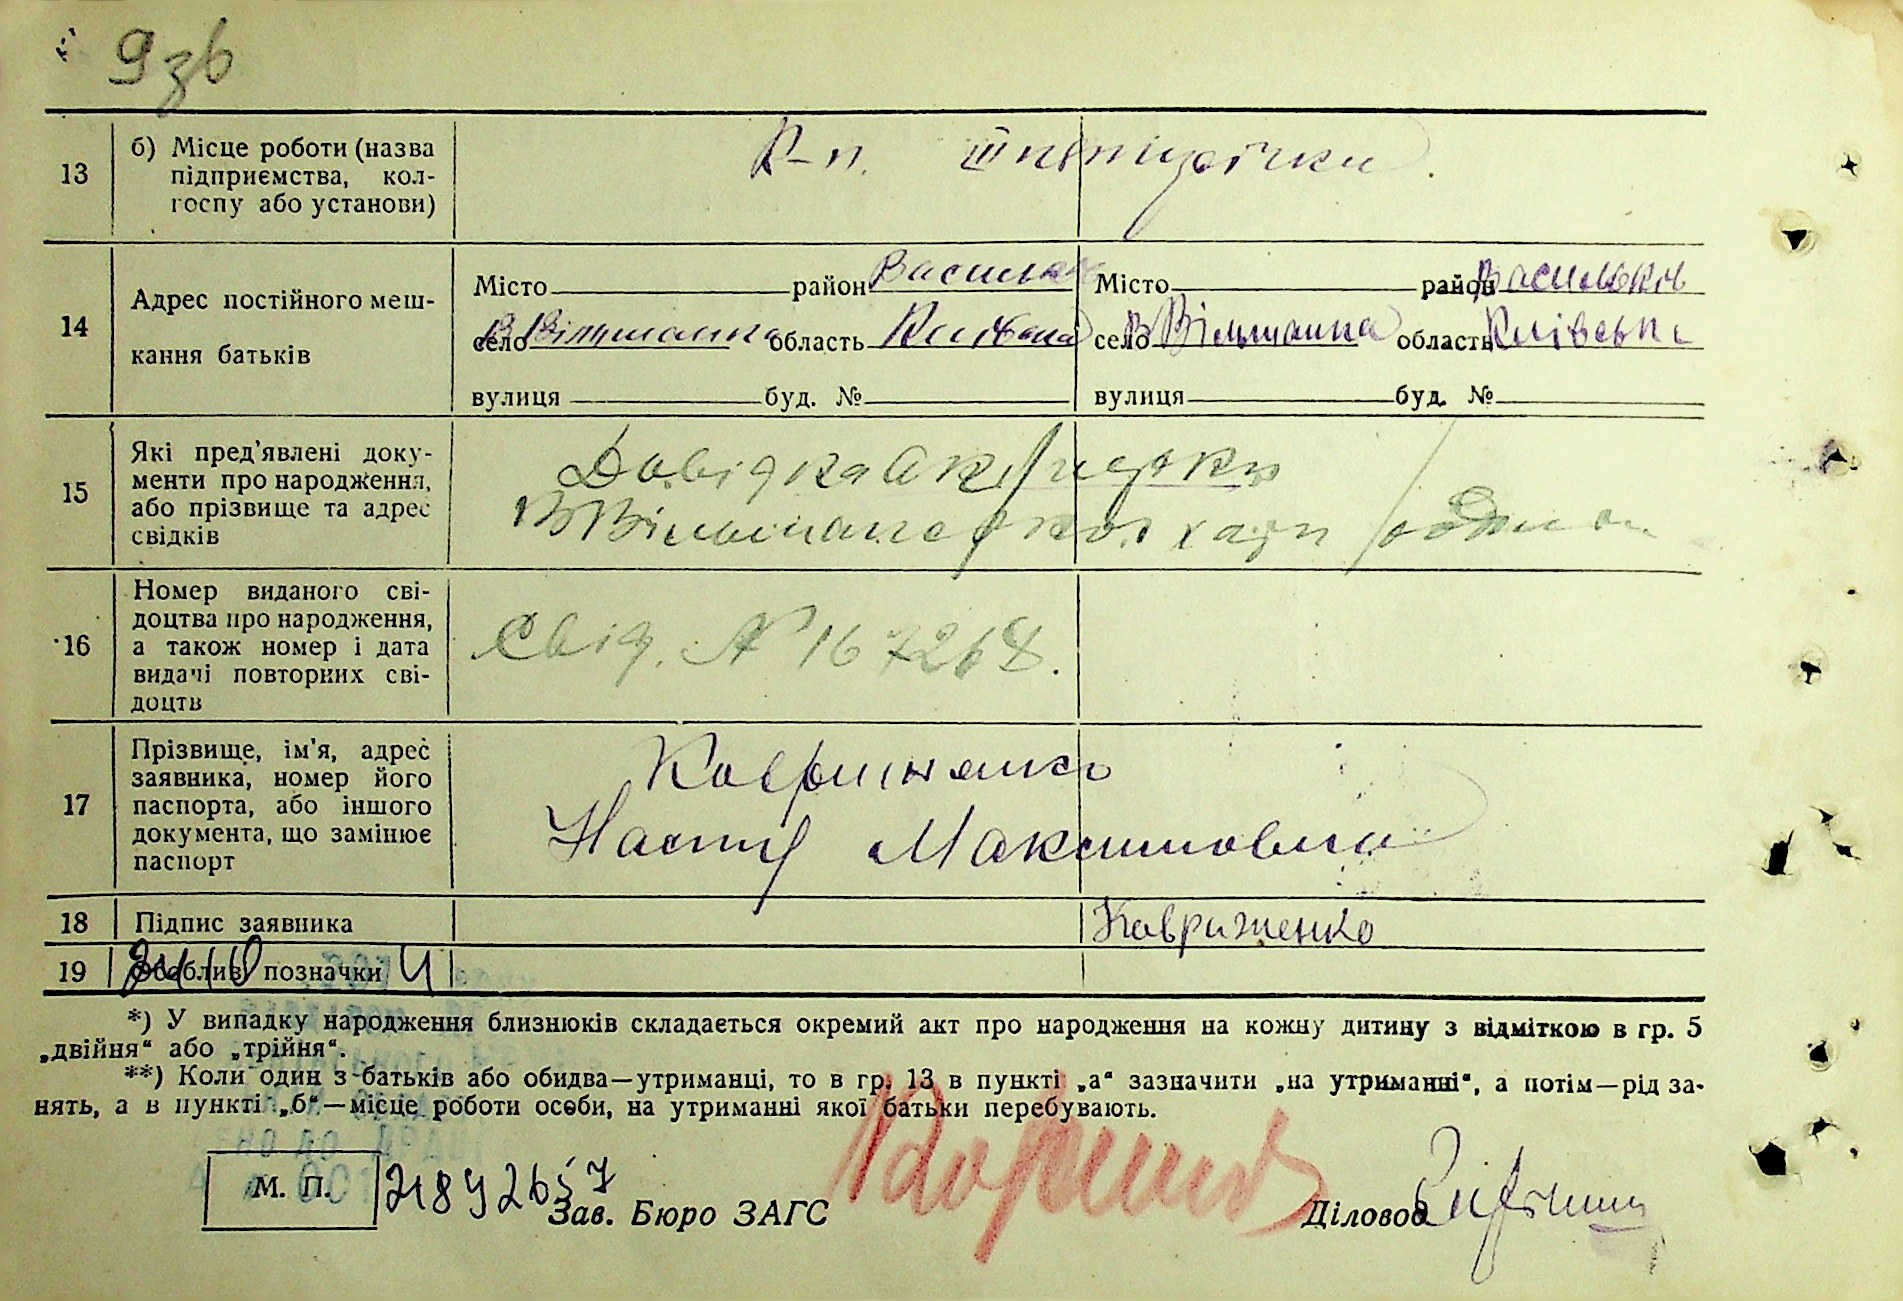 9зв
13
б) Місце роботи (назва
підприємства, кол-
госпу або установи)
К-п. III п'ятирічки.
14
Адрес постійного меш-
кання батьків
Місто район Васильк
село В Вільшанка область Київська
вулиця буд. №
Місто район Васильків
село В Вільшанка область Київськ
вулиця буд. №
15
Які пред’явлені доку-
менти про народження,
або прізвище та адрес
свідків
Довідка
В Вільшанської
16
Номер виданого сві-
доцтва про народження,
а також номер і дата
видачі повторних сві-
доцтв
Свід. № 167268.
17
Прізвище, ім’я, адрес
заявника, номер його
паспорта, або іншого
документа, що замінює
паспорт
Кавриженко
Настя Максимовна
18
Підпис заявника
Кавриженко
19
Особливі позначки
*) У випадку народження близнюків складається окремий акт про народження на кожну дитину з відміткою в гр. 5
„двійня“ або „трійня“.
**) Коли один з батьків або обидва—утриманці, то в гр. 13 в пункті „а“ зазначити „на утриманні“, а потім—рід за-
нять, а в пункті „б“—місце роботи особи, на утриманні якої батьки перебувають.
М. П.
Зав. Бюро ЗАГС
Діловод